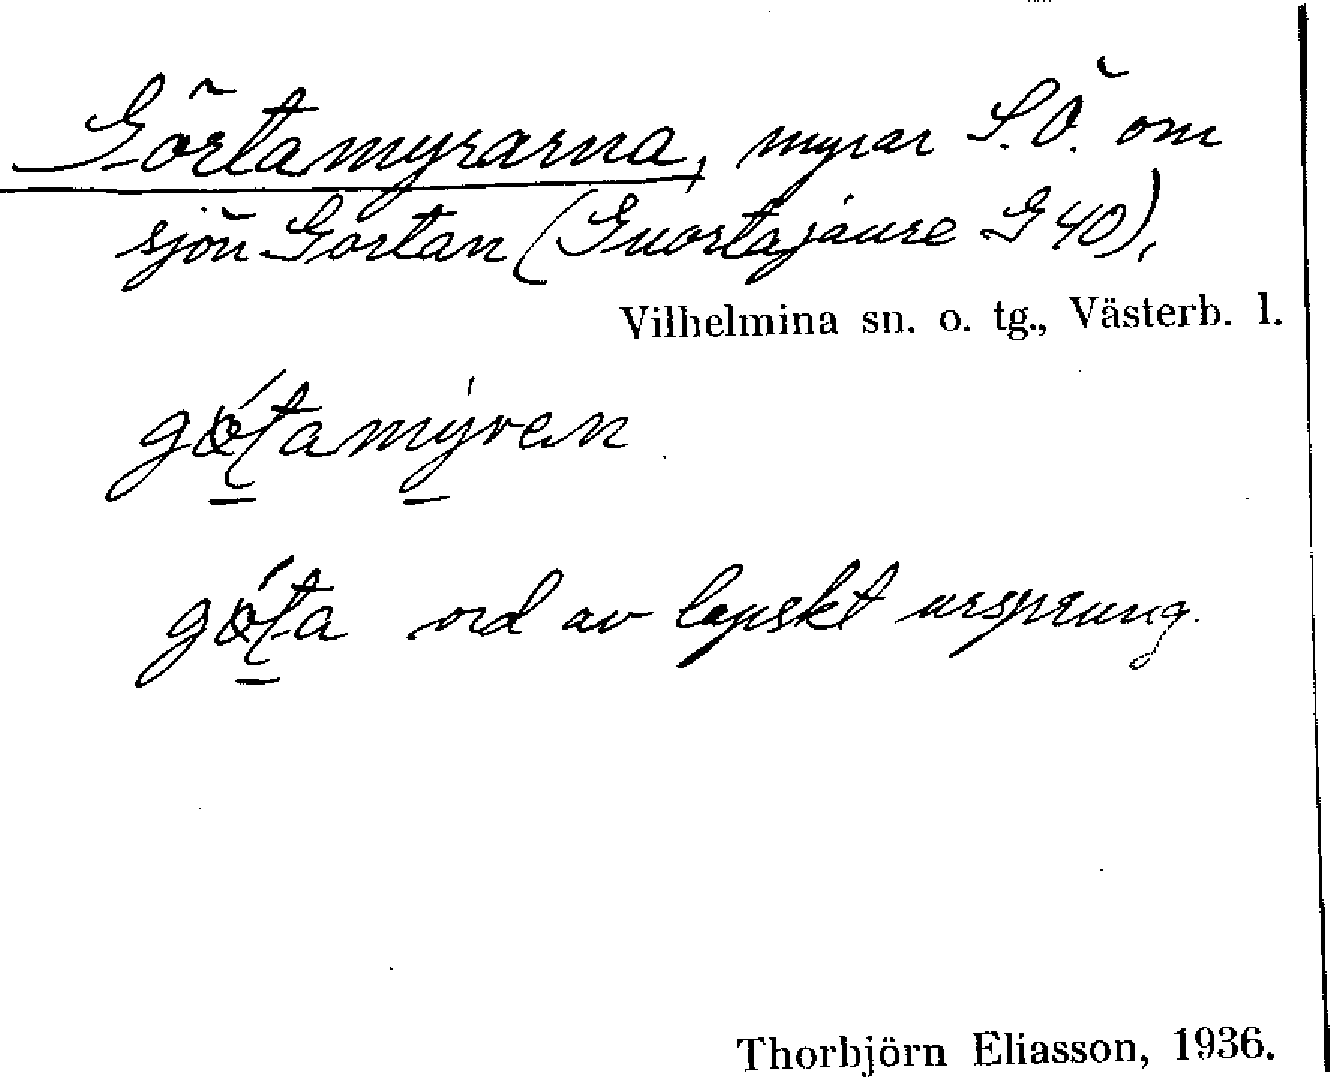 Görtamyrarna, myrar S.Ö. om
sjön Görtan (Guortajaure G 40),
Vilhelmina sn. o. tg., Västerb. l.
ord av lapskt ursprung.
Thorbjörn Eliasson, 1936.